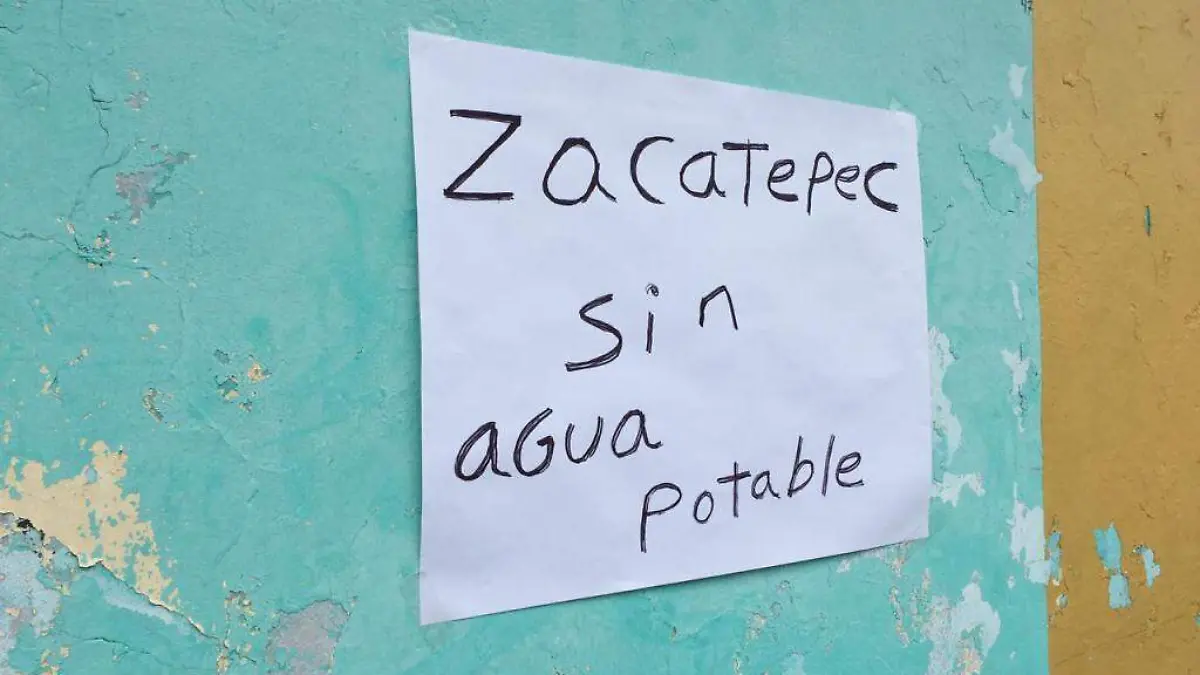 Zacatepec
sin
agua
potable